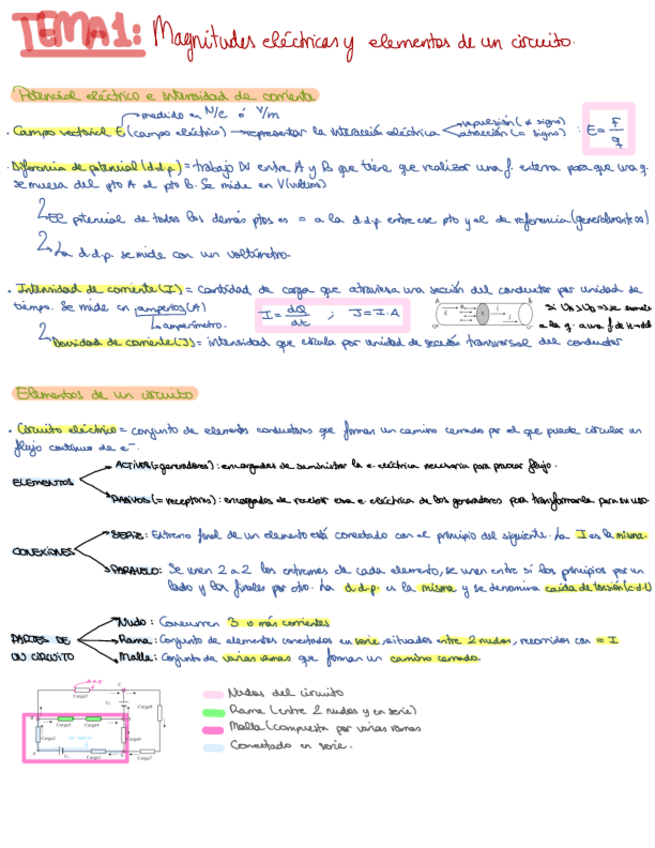 TEMA 1: Magnitudes eléctricas y elementos de un circuito.
Potencial eléctrico e intensidad de corriente
medido en N/C ó V/m
· Campo vectorial E (campo eléctrico) → representar la interacción eléctrica
repulsión (≠ signo)
atracción (= signo)
: E = F/q
· Diferencia de potencial (d.d.p.) = trabajo W entre A y B que tiene que realizar una f. externa para que una q.
se mueva del pto A al pto B. Se mide en V (voltios)
El potencial de todos los demás ptos es = a la d.d.p. entre ese pto y el de referencia (generalmente ∞)
La d.d.p. se mide con un voltímetro.
· Intensidad de corriente (I) = cantidad de carga que atraviesa una sección del conductor por unidad de
tiempo. Se mide en amperios (A)
amperímetro.
I = dQ/dt ; J = I·A
Densidad de corriente (J) = intensidad que circula por unidad de sección transversal del conductor
Elementos de un circuito
· Circuito eléctrico = conjunto de elementos conductores que forman un camino cerrado por el que puede circular un
flujo continuo de e⁻.
ELEMENTOS
ACTIVOS (= generadores): encargados de suministrar la e. eléctrica necesaria para provocar flujo.
PASIVOS (= receptores): encargados de recibir esa e. eléctrica de los generadores para transformarla para su uso
CONEXIONES
SERIE: Extremo final de un elemento está conectado con el principio del siguiente. La I es la misma.
PARALELO: Se unen 2 a 2 los extremos de cada elemento, se unen entre sí los principios por un
lado y los finales por otro. La d.d.p. es la misma y se denomina caída de tensión (c.d.t)
PARTES DE
UN CIRCUITO
Nudo: Concurren 3 o más corrientes
Rama: Conjunto de elementos conectados en serie, situados entre 2 nudos, recorridos con = I
Malla: Conjunto de varias ramas que forman un camino cerrado.
Nudos del circuito
Rama (entre 2 nudos y en serie)
Malla (compuesta por varias ramas
Conectado en serie.